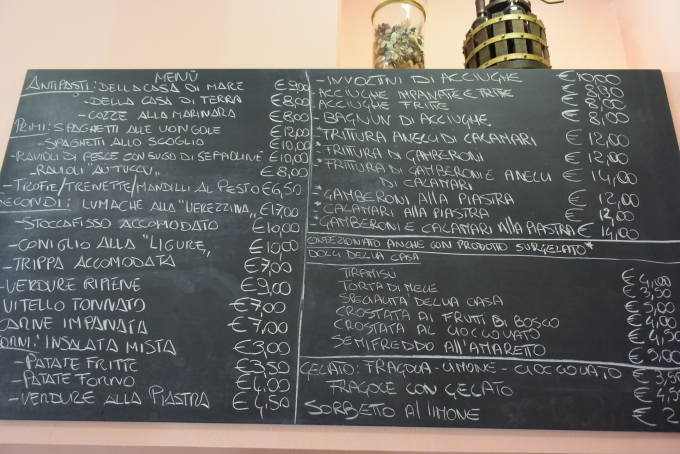 MENÙ
ANTIPASTI: DELLA CASA DI MARE €9,00
-DELLA CASA DI TERRA €8,00
-COZZE ALLA MARINARA €8,00
PRIMI: SPAGHETTI ALLE VONGOLE €12,00
-SPAGHETTI ALLO SCOGLIO €10,00
-RAVIOLI DI PESCE CON SUGO DI SEPPOLINE €10,00
-RAVIOLI "AU TUCCU" €8,00
-TROFIE/TRENETTE/MANDILLI AL PESTO €6,50
SECONDI: LUMACHE ALLA "VEREZZINA" €17,00
-STOCCAFISSO ACCOMODATO €10,00
-CONIGLIO ALLA "LIGURE" €10,00
-TRIPPA ACCOMODATA €7,00
-VERDURE RIPIENE €9,00
VITELLO TONNATO €7,00
CARNE IMPANATA €7,00
CONTORNI: INSALATA MISTA €3,00
-PATATE FRITTE €3,50
-PATATE FORNO €4,00
-VERDURE ALLA PIASTRA €4,50
-INVOLTINI DI ACCIUGHE €10,00
ACCIUGHE IMPANATE E FRITTE €8,00
ACCIUGHE FRITTE €8,00
BAGNUN DI ACCIUGHE €8,00
*FRITTURA ANELLI DI CALAMARI €12,00
*FRITTURA DI GAMBERONI €12,00
*FRITTURA DI GAMBERONI E ANELLI
DI CALAMARI €14,00
*GAMBERONI ALLA PIASTRA €12,00
*CALAMARI ALLA PIASTRA €12,00
*GAMBERONI E CALAMARI ALLA PIASTRA €14,00
CONFEZIONATO ANCHE CON PRODOTTO SURGELATO*
DOLCI DELLA CASA
TIRAMISÙ €4,00
TORTA DI MELE €3,50
SPECIALITÀ DELLA CASA €5,00
CROSTATA AI FRUTTI DI BOSCO €4,00
CROSTATA AL CIOCCOLATO €4,50
SEMIFREDDO ALL'AMARETTO €5,00
GELATO: FRAGOLA-LIMONE-CIOCCOLATO €3,50
FRAGOLE CON GELATO €4,50
SORBETTO AL LIMONE €2